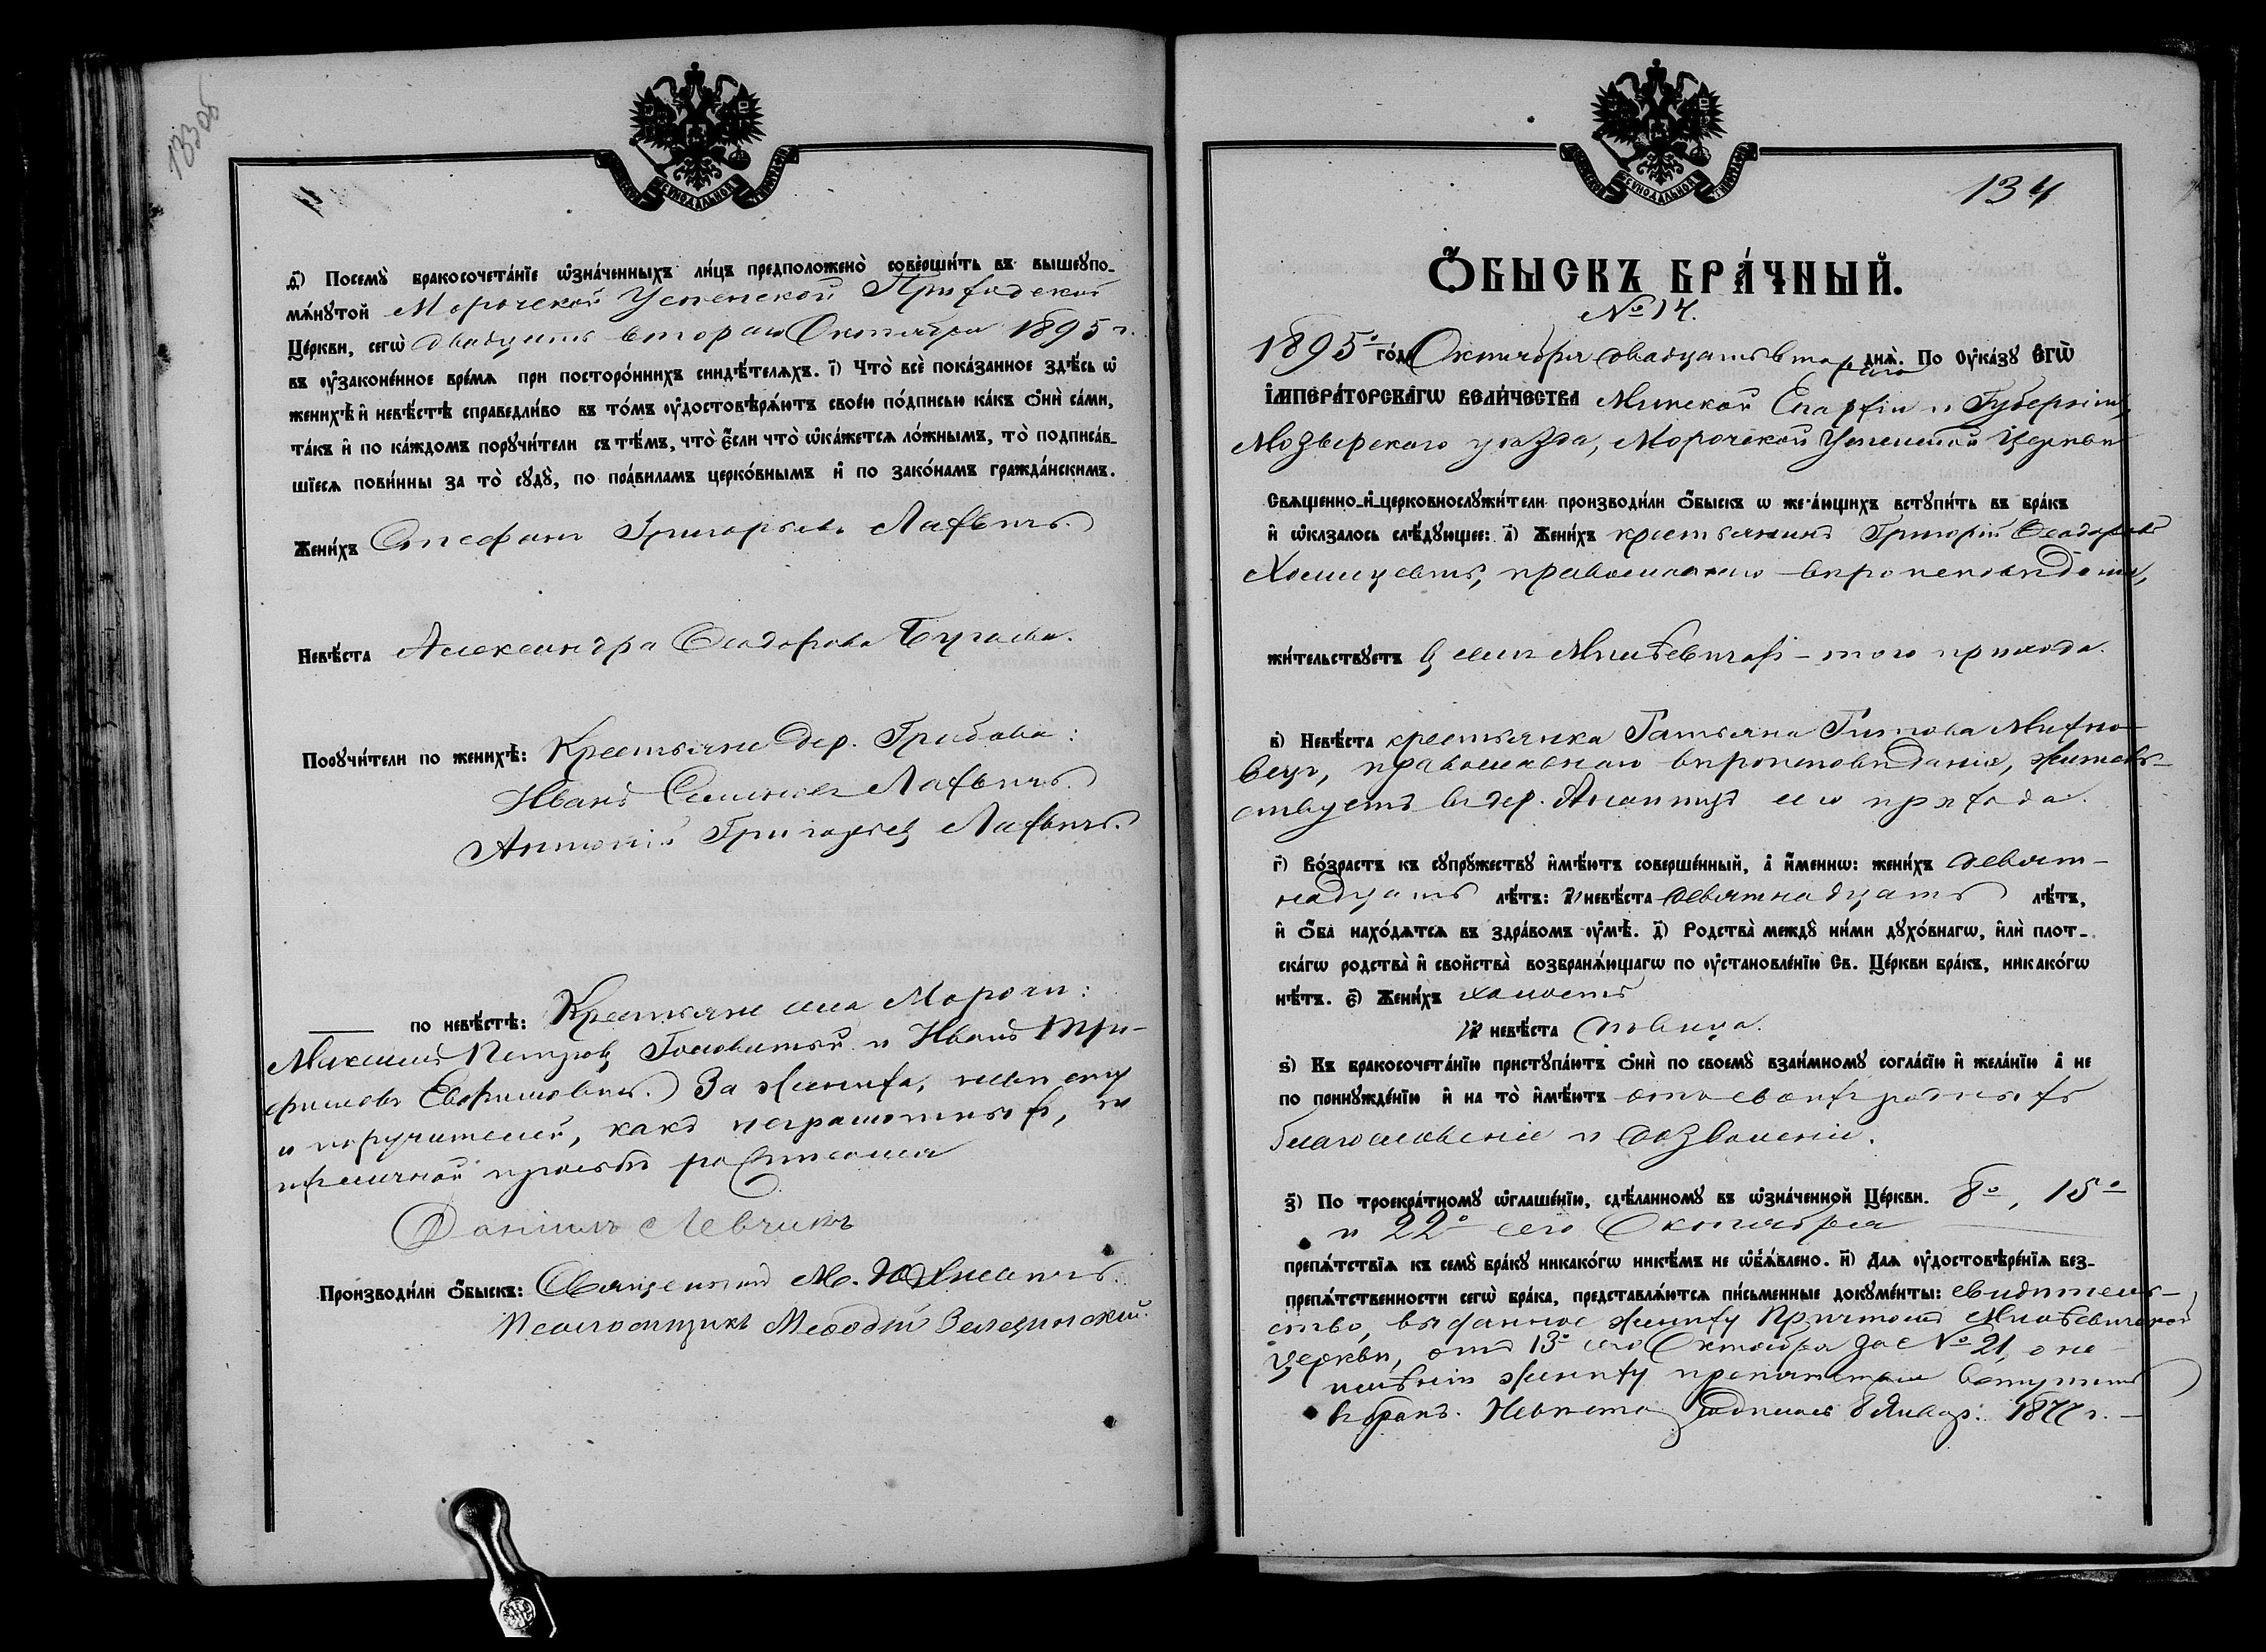 133об
СѴНОДАЛЬНОЙ
ѳ҃) Посемꙋ̀ бракосочета́нїе ѡ҆зна́ченныхъ ли́цъ предположено̀ соверши́ть въ вышеꙋпо-
мѧ́нꙋтой Морочской Успенской Приходской
Це́ркви, сегѡ̀ двадцать втораго Октября 1895 г.
въ ᲂу҆законе́нное вре́мѧ при посторо́ннихъ свидѣ́телѧхъ. і҃) Что̀ всѐ пока́занное здѣ́сь ѡ҆
женихѣ̀ и҆ невѣ́стѣ справедли́во въ то́мъ ᲂу҆достовѣрѧ́ютъ свое́ю по́дписью ка́къ ѻ҆нѝ са́ми,
та́къ и҆ по ка́ждомъ порꙋчи́тели съ тѣ́мъ, что̀ є҆́сли что̀ ѡ҆ка́жетсѧ ло́жнымъ, то̀ подписа́в-
шїесѧ пови́нны за то̀ сꙋдꙋ̀, по пра́виламъ церко́внымъ и҆ по зако́намъ гражда́нскимъ.
Жени́хъ Стефанъ Григорьевъ Лахвичъ.
Невѣ́ста Александра Ѳеодорова Бугаева.
Порꙋчи́тели по женихѣ̀: Крестьяне дер. Грибова:
Иванъ Семеновъ Лахвичъ.
Антоній Григорьевъ Лахвичъ.
по невѣ́стѣ: Крестьяне села Морочи:
Максимъ Петровъ Головатый и Иванъ
За жениха, невѣсту
и поручителей, какъ неграмотныхъ, по
ихъ личной просьбѣ росписался
Даніилъ Левчикъ
Производи́ли ѻ҆́быскъ: Священникъ М.
Псаломщикъ Меѳодій
134
СѴНОДАЛЬНОЙ
Ѻ҆́БЫСКЪ БРА́ЧНЫЙ.
№ 14.
1895го го́да Октября двадцать втораго днѧ̀. По ᲂу҆ка́зꙋ Є҆ГѠ̀
І҆МПЕРА́ТОРСКАГѠ ВЕЛИ́ЧЕСТВА Минской Епархіи и Губерніи,
Мозырскаго уѣзда, Морочской Успенской Церкви
Свѧще́нно-и҆-церковнослꙋжи́тели производи́ли ѻ҆́быскъ ѡ҆ жела́ющихъ встꙋпи́ть въ бра́къ
и҆ ѡ҆каза́лось слѣ́дꙋющее: а҃) Жени́хъ крестьянинъ Григорій Ѳеодоровъ
православнаго вѣроисповѣданія,
жи́тельствꙋетъ въ селѣ Милевичахъ – того прихода.
в҃) Невѣ́ста крестьянка Татьяна Титова Михно-
вецъ, православнаго вѣроисповѣданія, житель-
ствуетъ въ дер. сего прихода.
г҃) Во́зрастъ къ сꙋпрꙋ́жествꙋ и҆мѣ́ютъ соверше́нный, а҆ и҆́меннѡ: жени́хъ девят-
надцать лѣ́тъ: и҆ невѣ́ста девятнадцать лѣ́тъ,
и҆ ѻ҆́ба нахо́дѧтсѧ въ здра́вомъ ᲂу҆мѣ̀. д҃) Родства̀ междꙋ̀ ни́ми дꙋхо́внагѡ, и҆лѝ плот-
ска́гѡ родства̀ и҆ сво́йства̀ возбранѧ́ющагѡ по ᲂу҆становле́нїю Св. Це́ркви бра́къ, никако́гѡ
нѣ́тъ. є҃) Жени́хъ холостъ
и҆ невѣ́ста дѣвица.
ѕ҃) Къ бракосочета́нїю пристꙋпа́ютъ ѻ҆нѝ по своемꙋ̀ взаи́мномꙋ согла́сїю и҆ жела́нїю а҆ не
по принꙋжде́нїю и҆ на то̀ и҆мѣ́ютъ отъ своихъ родныхъ
благословеніе и дозволеніе.
з҃) По троекра́тномꙋ ѡ҆глаше́нїю, сдѣ́ланномꙋ въ ѡ҆зна́ченной Це́ркви. 8го, 15го
и 22го сего Октября
препѧ́тствїѧ къ семꙋ̀ бра́кꙋ никако́гѡ никѣ́мъ не ѡ҆б̾ѧ́влено. и҃) Длѧ ᲂу҆достовѣре́нїѧ без-
препѧ́тственности сегѡ̀ бра́ка, представлѧ́ютсѧ пи́сьменные докꙋме́нты: свидѣтель-
ство, выданное жениху Причтомъ Милевичской
Церкви, отъ 13го сего Октября за № 21, о не-
имѣніи жениху препятствія вступить
въ бракъ. Невѣста родилась 8 Январ. 1877 г. –